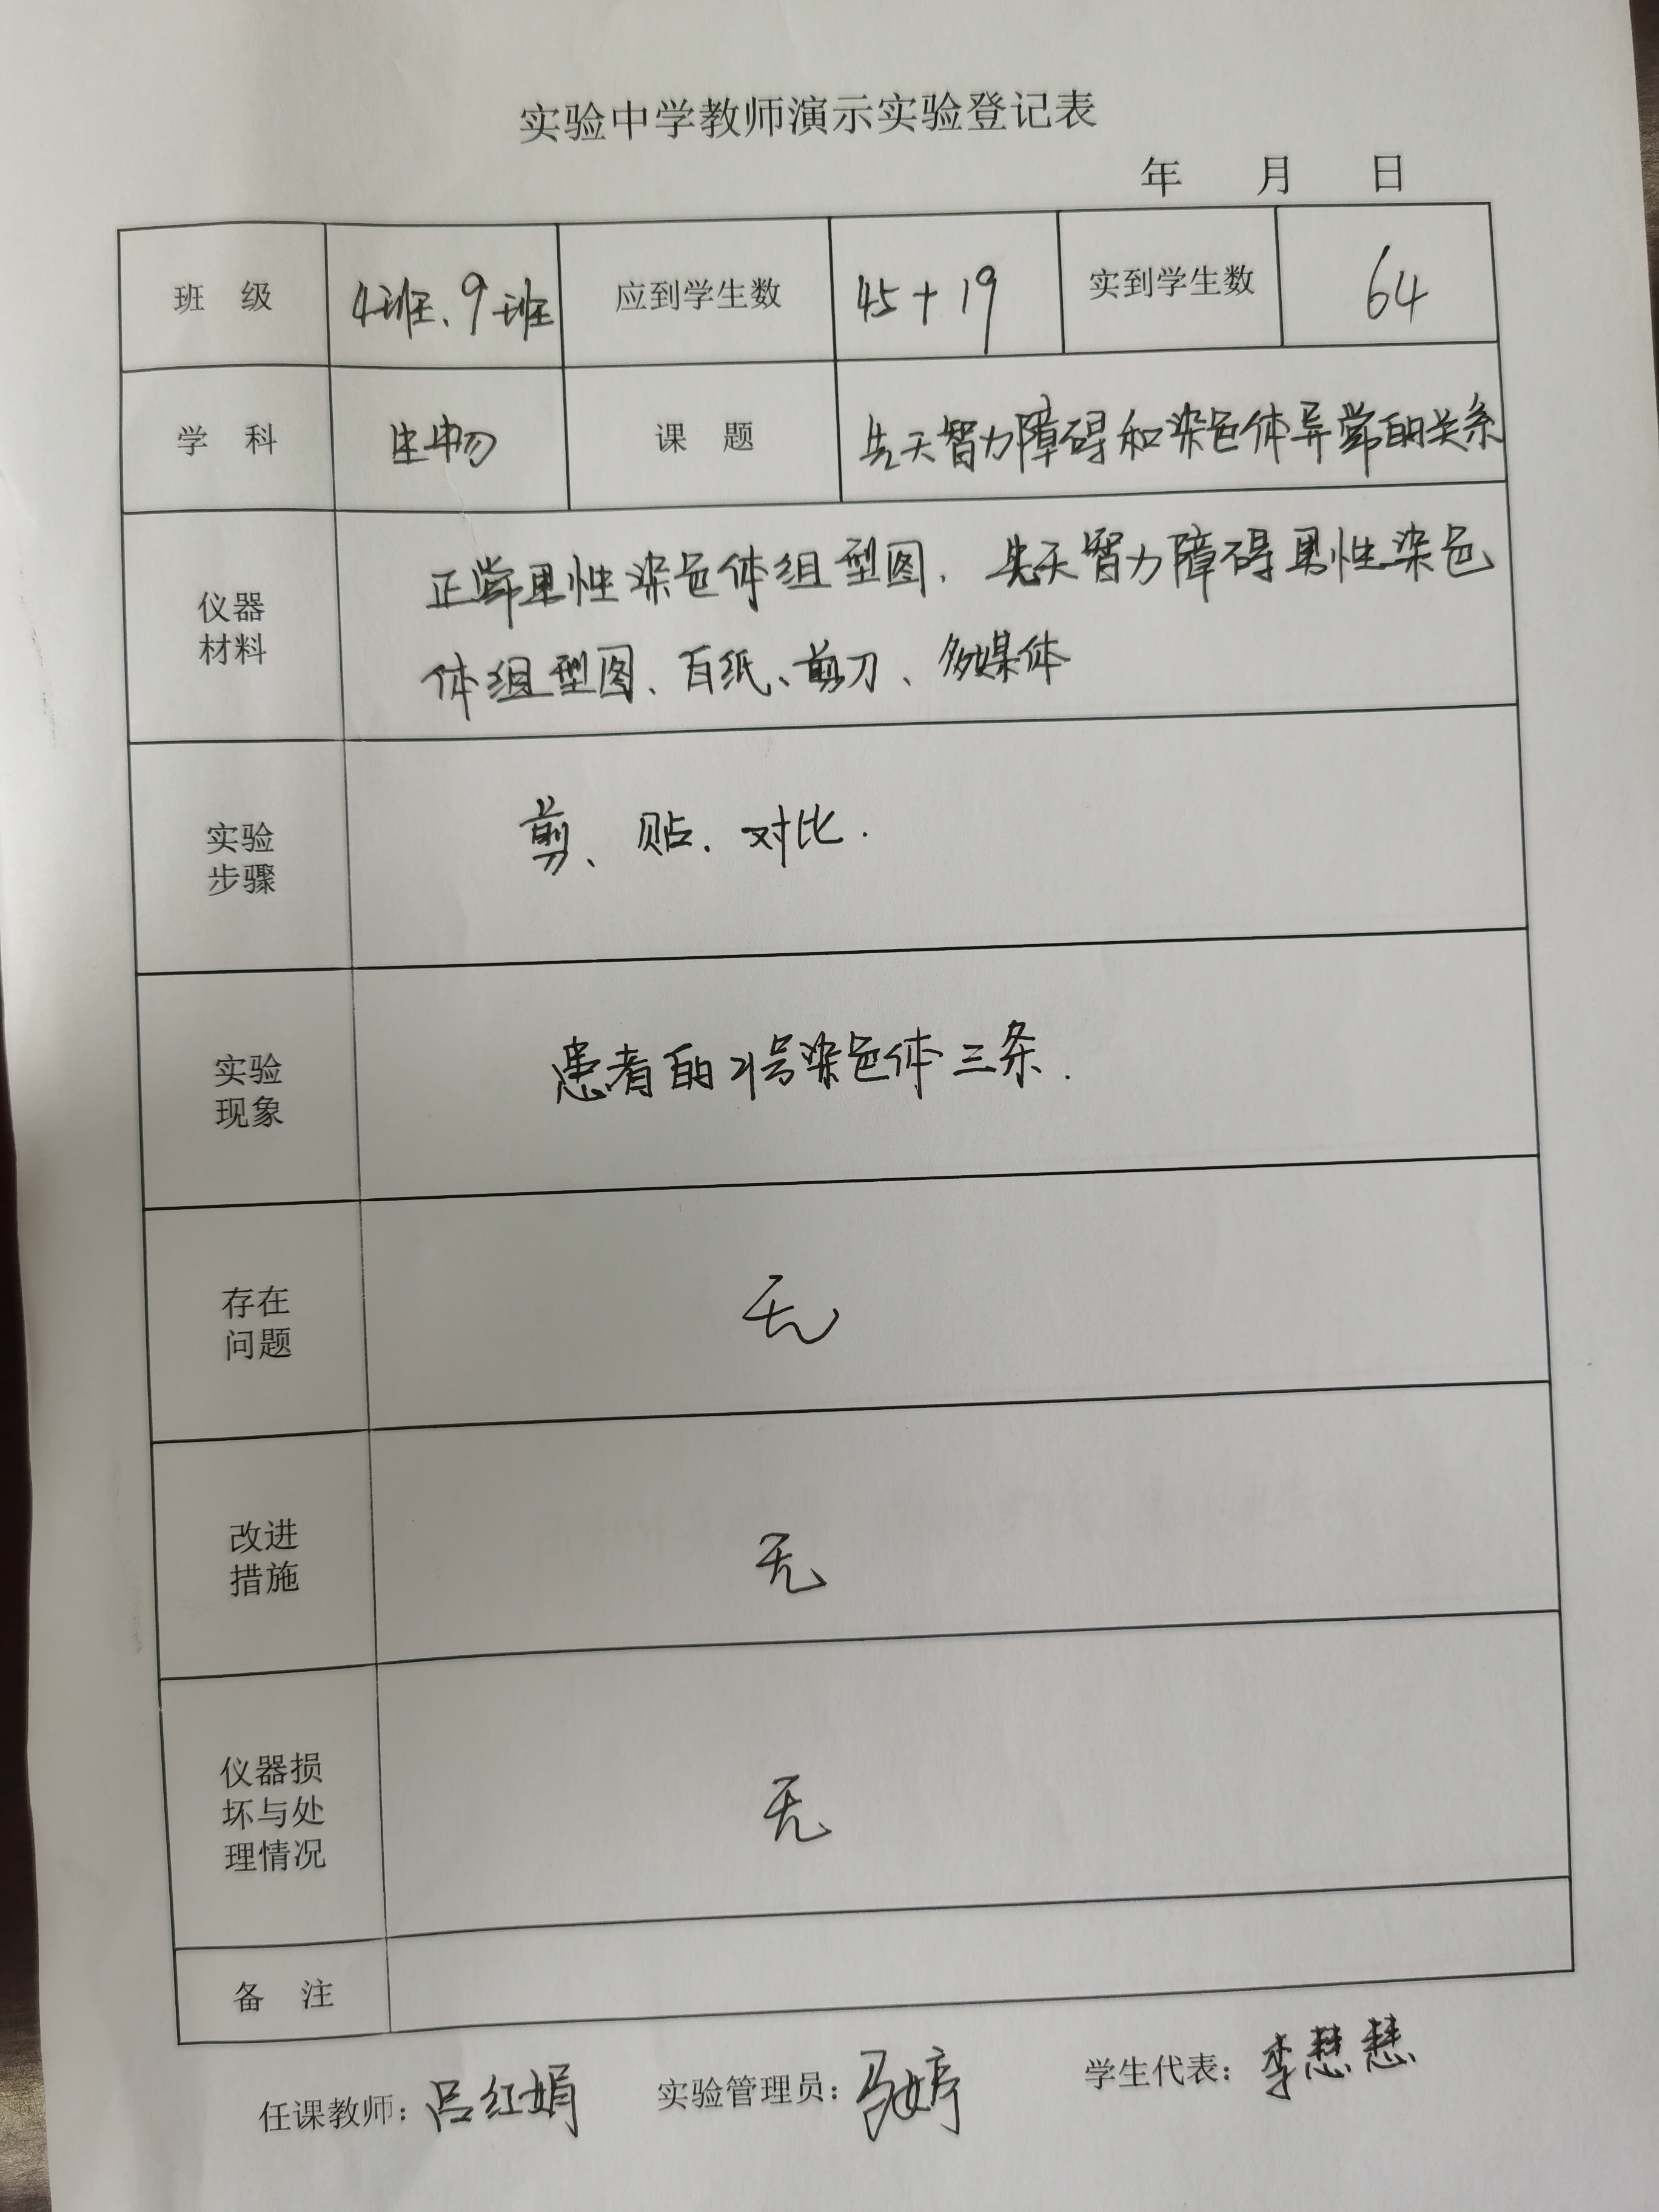 实验中学教师演示实验登记表
年 月 日
班 级 4班、9班 应到学生数 45+19 实到学生数 64
学 科 生物 课 题 先天智力障碍和染色体异常的关系
仪器
材料
正常男性染色体组型图、先天智力障碍男性染色
体组型图、百纸、剪刀、多媒体
实验
步骤
剪、贴、对比.
实验
现象
患者的21号染色体三条.
存在
问题
无
改进
措施
无
仪器损
坏与处
理情况
无
备 注
任课教师：吕红娟 实验管理员：马婷 学生代表：李慧慧